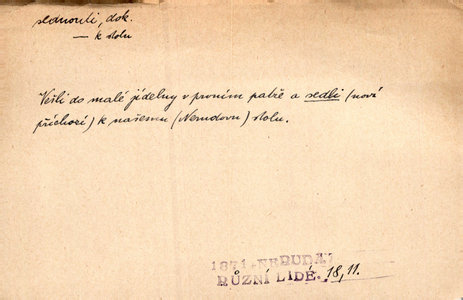 sednouti, dok.
— k stolu
Vešli do malé jídelny v prvním patře a sedli (nová
příchozí) k našemu (Nerudovu) stolu.
1871. NERUDA:
RŮZNÍ LIDÉ. 18, 11.